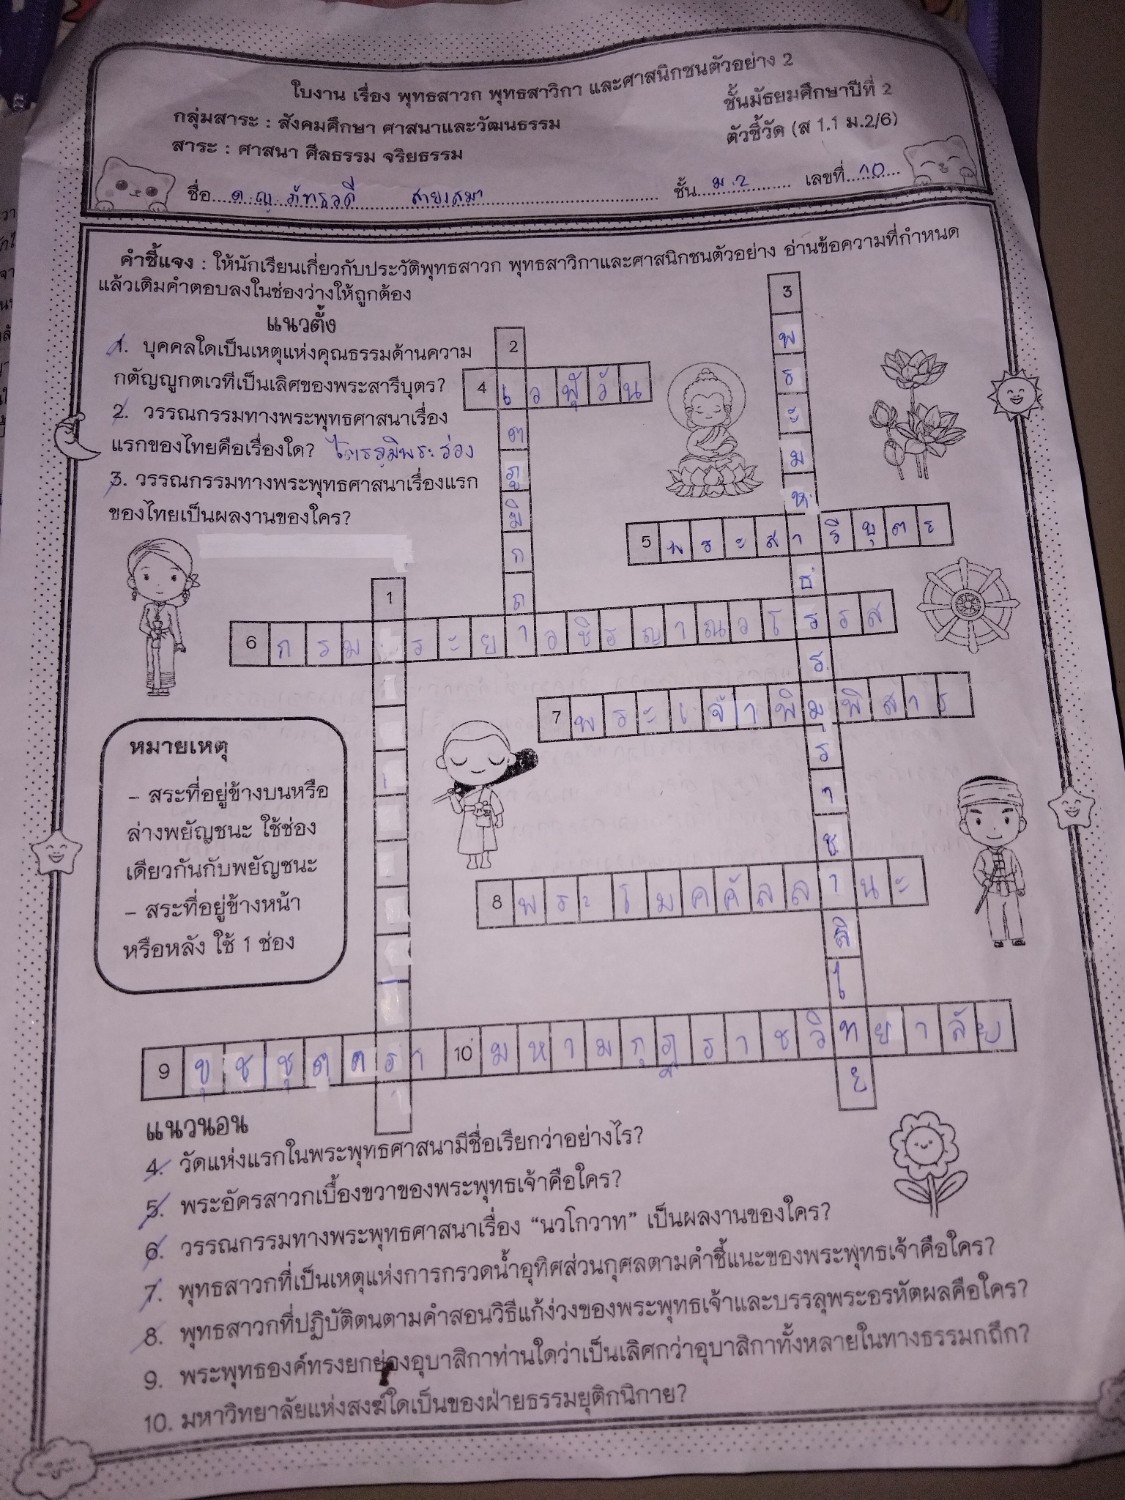 ใบงาน เรื่อง พุทธสาวก พุทธสาวิกา และศาสนิกชนตัวอย่าง 2
กลุ่มสาระ : สังคมศึกษา ศาสนาและวัฒนธรรม
ชั้นมัธยมศึกษาปีที่ 2
สาระ : ศาสนา ศีลธรรม จริยธรรม
ตัวชี้วัด (ส 1.1 ม.2/6)
ชื่อ ด.ญ. ภัทรวดี ชั้น ม.2 เลขที่ 10
คำชี้แจง : ให้นักเรียนเกี่ยวกับประวัติพุทธสาวก พุทธสาวิกาและศาสนิกชนตัวอย่าง อ่านข้อความที่กำหนด
แล้วเติมคำตอบลงในช่องว่างให้ถูกต้อง
แนวตั้ง
1. บุคคลใดเป็นเหตุแห่งคุณธรรมด้านความ
กตัญญูกตเวทีเป็นเลิศของพระสารีบุตร?
2. วรรณกรรมทางพระพุทธศาสนาเรื่อง
แรกของไทยคือเรื่องใด? ไตรภูมิพระร่วง
3. วรรณกรรมทางพระพุทธศาสนาเรื่องแรก
ของไทยเป็นผลงานของใคร?
3 พระมหาธรรมราชาลิไทย
2 เตภูมิกถา
4 เวฬุวัน
5 พระสารีบุตร
1
6 กรมพระยาวชิรญาณวโรรส
7 พระเจ้าพิมพิสาร
8 พระโมคคัลลานะ
9 ขุชชุตตรา
10 มหามกุฏราชวิทยาลัย
หมายเหตุ
– สระที่อยู่ข้างบนหรือ
ล่างพยัญชนะ ใช้ช่อง
เดียวกันกับพยัญชนะ
– สระที่อยู่ข้างหน้า
หรือหลัง ใช้ 1 ช่อง
แนวนอน
4. วัดแห่งแรกในพระพุทธศาสนามีชื่อเรียกว่าอย่างไร?
5. พระอัครสาวกเบื้องขวาของพระพุทธเจ้าคือใคร?
6. วรรณกรรมทางพระพุทธศาสนาเรื่อง “นวโกวาท” เป็นผลงานของใคร?
7. พุทธสาวกที่เป็นเหตุแห่งการกรวดน้ำอุทิศส่วนกุศลตามคำชี้แนะของพระพุทธเจ้าคือใคร?
8. พุทธสาวกที่ปฏิบัติตนตามคำสอนวิธีแก้ง่วงของพระพุทธเจ้าและบรรลุพระอรหัตผลคือใคร?
9. พระพุทธองค์ทรงยกย่องอุบาสิกาท่านใดว่าเป็นเลิศกว่าอุบาสิกาทั้งหลายในทางธรรมกถึก?
10. มหาวิทยาลัยแห่งสงฆ์ใดเป็นของฝ่ายธรรมยุติกนิกาย?